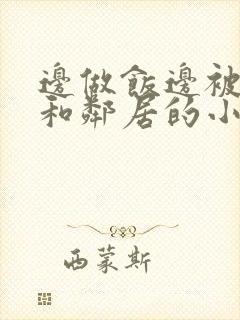 邊做飯邊被
和鄰居的小
西蒙斯